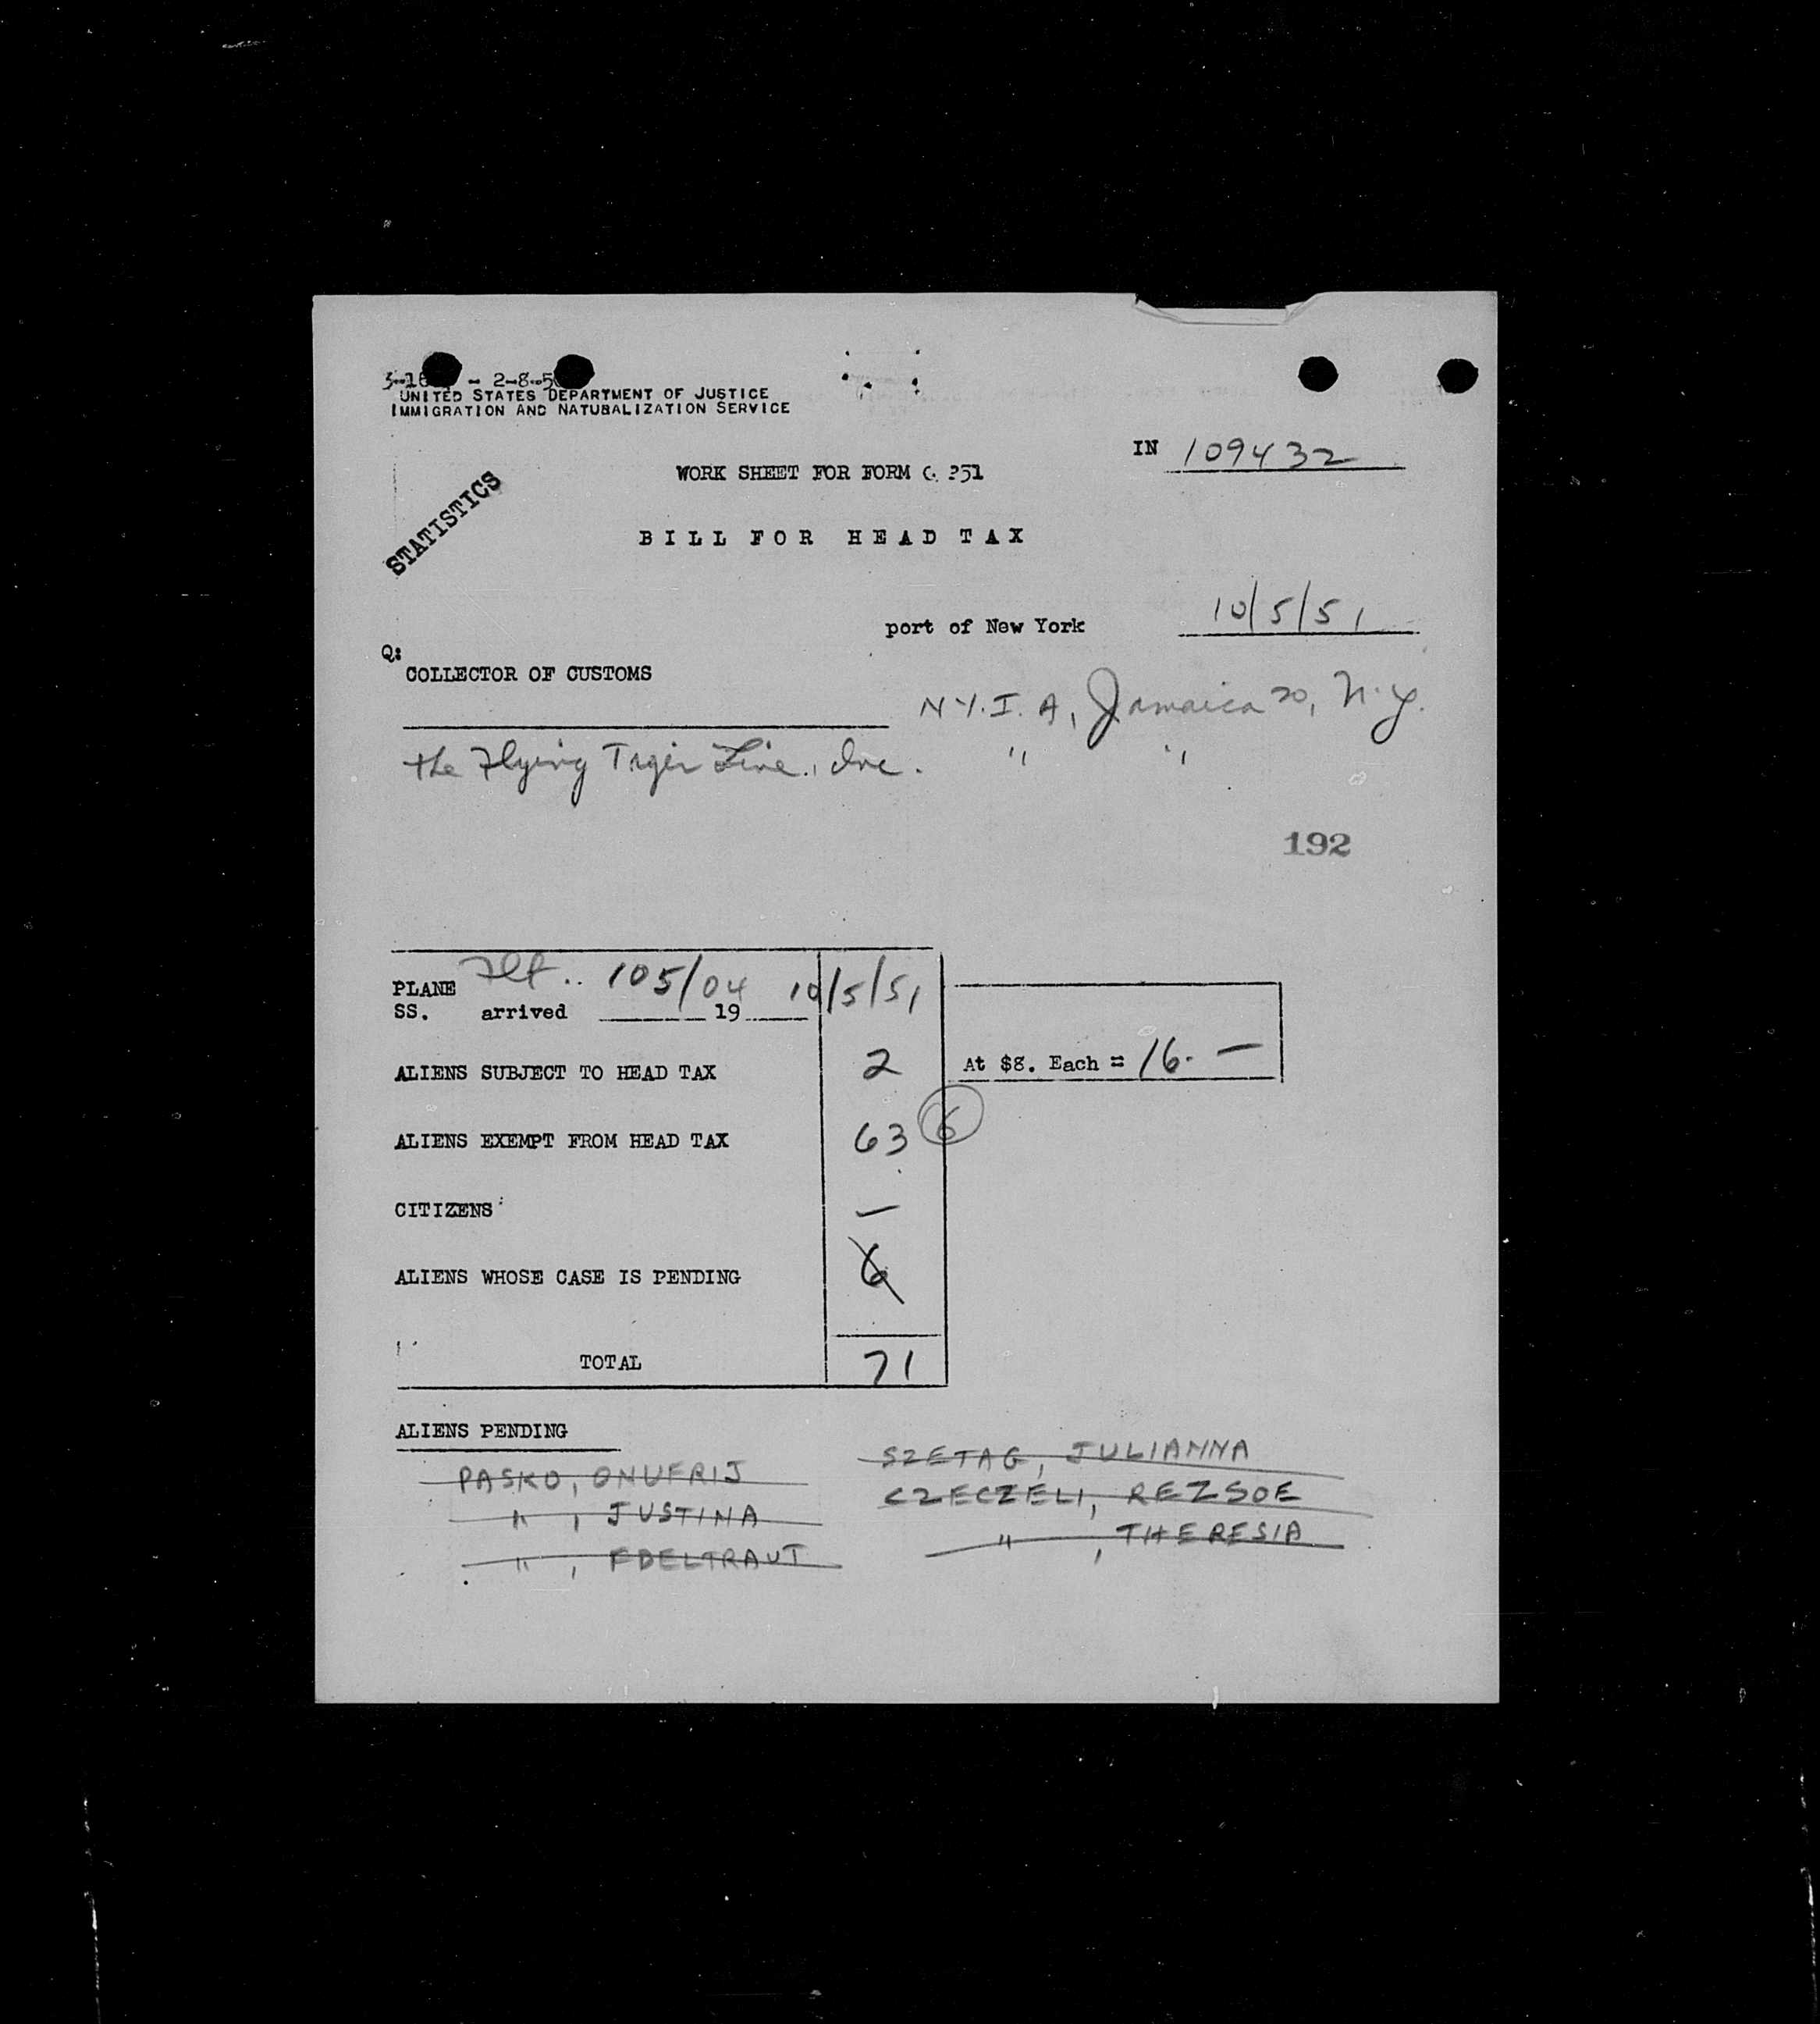 - 2-8-5
UNITED STATES DEPARTMENT OF JUSTICE
IMMIGRATION AND NATURALIZATION SERVICE
IN 109432
WORK SHEET FOR FORM 351
STATISTICS
BILL FOR HEAD TAX
port of New York 10/5/51
Q:
COLLECTOR OF CUSTOMS
N.Y.I.A, Jamaica 20, N.Y.
The Flying Tiger Line, Inc. " "
192
PLANE Flt.. 105/04 10/5/51
SS. arrived 19
ALIENS SUBJECT TO HEAD TAX 2 At $8. Each = 16. —
ALIENS EXEMPT FROM HEAD TAX 63 6
CITIZENS —
ALIENS WHOSE CASE IS PENDING 6
TOTAL 71
ALIENS PENDING
PASKO, ONUFRIJ
" , JUSTINA
" , EDELTRAUT
SZETAG, JULIANNA
CZECZELI, REZSOE
" , THERESIA